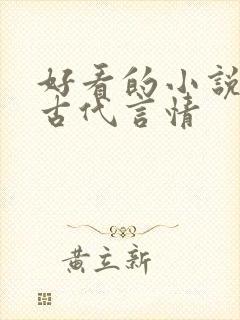 好看的小説
古代言情
黄立新